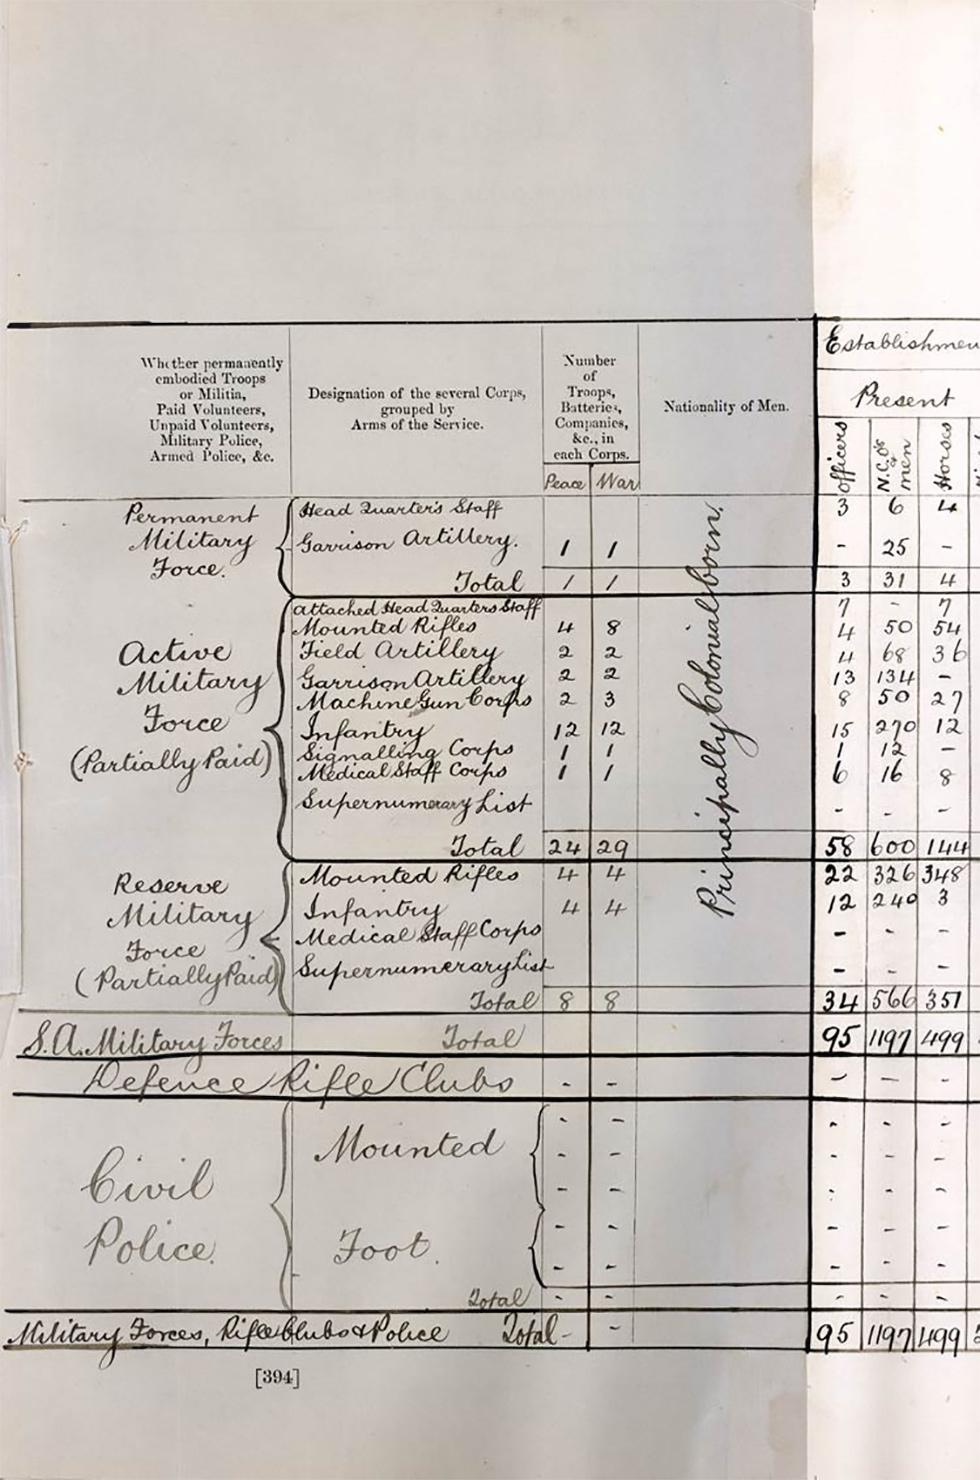 Establishmen
Present
Whether permanently
embodied Troops
or Militia,
Paid Volunteers,
Unpaid Volunteers,
Military Police,
Armed Police, &c.
Designation of the several Corps,
grouped by
Arms of the Service.
Number
of
Troops,
Batteries,
Companies,
&c., in
each Corps.
Peace War
Nationality of Men.
officers
N.C.O's & men
Horses
Principally Colonial born.
Permanent
Military
Force.
Head Quarter's Staff 3 6 4
Garrison Artillery. 1 1 - 25 -
Total 1 1 3 31 4
Active
Military
Force
(Partially Paid)
Attached Head Quarters Staff 7 - 7
Mounted Rifles 4 8 4 50 54
Field Artillery 2 2 4 68 36
Garrison Artillery 2 2 13 134 -
Machine Gun Corps 2 3 8 50 27
Infantry 12 12 15 270 12
Signalling Corps 1 1 1 12 -
Medical Staff Corps 1 1 6 16 8
Supernumerary List - - -
Total 24 29 58 600 144
Reserve
Military
Force
(Partially Paid)
Mounted Rifles 4 4 22 326 348
Infantry 4 4 12 240 3
Medical Staff Corps - - -
Supernumerary List - - -
Total 8 8 34 566 351
S.A. Military Forces Total 95 1197 499
Defence Rifle Clubs - - - - -
Civil
Police.
Mounted
- - - - -
- - - - -
- - - - -
Foot.
- - - - -
- - - - -
Total - - - - -
Military Forces, Rifle Clubs & Police Total - - 95 1197 499
[394]